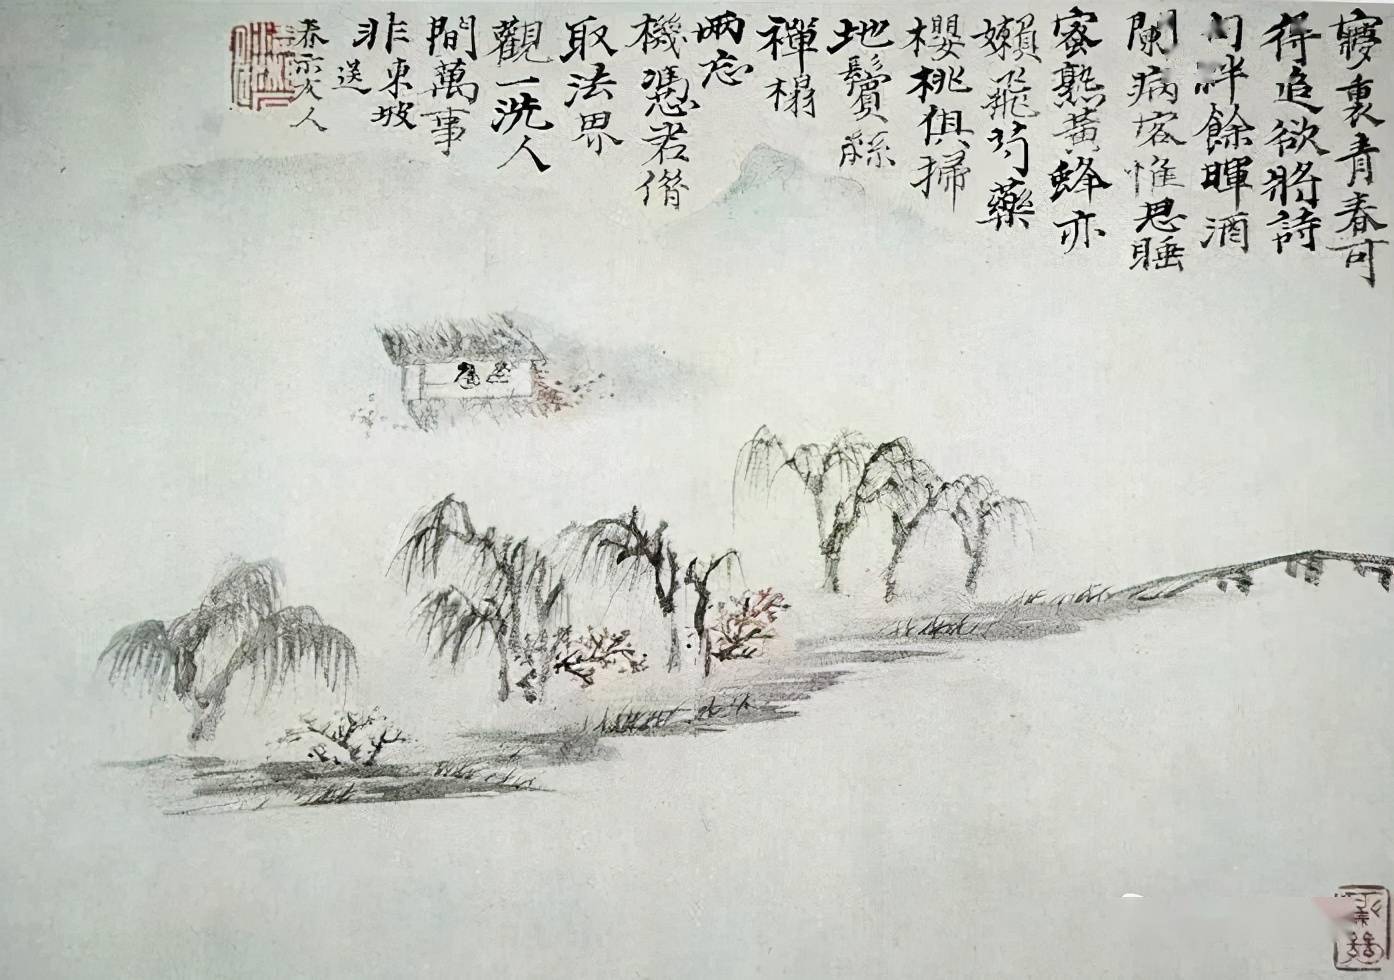 㝱裏青春可
得追欲將詩
句絆餘暉酒
闌病客惟思睡
蜜熟黃蜂亦
嬾飛芍藥
櫻桃俱掃
地鬢絲
禪榻
兩忘
機憑君借
取法界
觀一洗人
間萬事
非東坡
送
春人